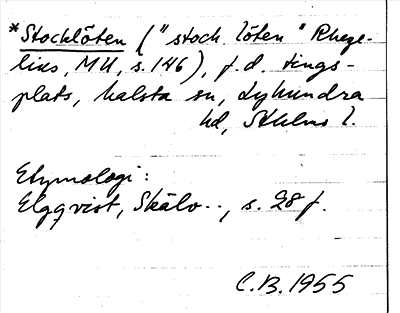 *Stocklöten ("stock. löten" Rheze-
lius, MU, s. 146), f.d. tings-
plats, Malsta sn, Lyhundra
hd, Sthlms l.
Etymologi:
Elgqvist, Skälv.., s. 28 f.
C.B. 1955